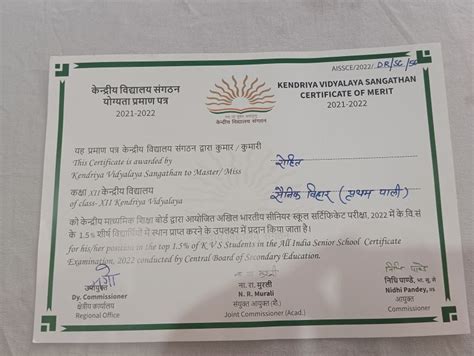 AISSCE/2022/ DR/SC/56
केन्द्रीय विद्यालय संगठन
योग्यता प्रमाण पत्र
2021-2022
केन्द्रीय विद्यालय संगठन
KENDRIYA VIDYALAYA SANGATHAN
CERTIFICATE OF MERIT
2021-2022
यह प्रमाण पत्र केन्द्रीय विद्यालय संगठन द्वारा कुमार / कुमारी
This Certificate is awarded by
Kendriya Vidyalaya Sangathan to Master/ Miss
रोहित
कक्षा XII केन्द्रीय विद्यालय
of class-XII Kendriya Vidyalaya
सैनिक विहार (प्रथम पाली)
को केन्द्रीय माध्यमिक शिक्षा बोर्ड द्वारा आयोजित अखिल भारतीय सीनियर स्कूल सर्टिफिकेट परीक्षा, 2022 में के.वि.सं
के 1.5% शीर्ष विद्यार्थियों में स्थान प्राप्त करने के उपलक्ष्य में प्रदान किया जाता है।
for his/her position in the top 1.5% of K V S Students in the All India Senior School Certificate
Examination, 2022 conducted by Central Board of Secondary Education.
उपायुक्त
Dy. Commissioner
क्षेत्रीय कार्यालय
Regional Office
ना. रा. मुरली
ना. रा. मुरली
N. R. Murali
संयुक्त आयुक्त (शै.)
Joint Commissioner (Acad.)
निधि पाण्डे
निधि पाण्डे, भा. सू. से
Nidhi Pandey, IIS
आयुक्त
Commissioner